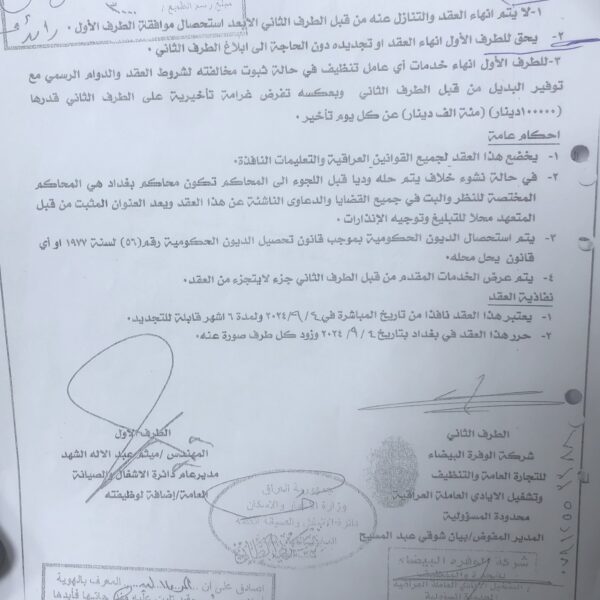 ١- لا يتم انهاء العقد والتنازل عنه من قبل الطرف الثاني الا بعد استحصال موافقة الطرف الأول .
٢- يحق للطرف الأول انهاء العقد او تجديده دون الحاجة الى ابلاغ الطرف الثاني .
٣- للطرف الأول انهاء خدمات أي عامل تنظيف في حالة ثبوت مخالفته لشروط العقد والدوام الرسمي مع
توفير البديل من قبل الطرف الثاني وبعكسه تفرض غرامة تأخيرية على الطرف الثاني قدرها
(١٠٠٠٠٠دينار) (مئة الف دينار) عن كل يوم تأخير .
احكام عامة
١- يخضع هذا العقد لجميع القوانين العراقية والتعليمات النافذة.
٢- في حالة نشوء خلاف يتم حله وديا قبل اللجوء الى المحاكم تكون محاكم بغداد هي المحاكم
المختصة للنظر والبت في جميع القضايا والدعاوى الناشئة عن هذا العقد ويعد العنوان المثبت من قبل
المتعهد محلا للتبليغ وتوجيه الإنذارات .
٣- يتم استحصال الديون الحكومية بموجب قانون تحصيل الديون الحكومية رقم(٥٦) لسنة ١٩٧٧ او أي
قانون يحل محله.
٤- يتم عرض الخدمات المقدم من قبل الطرف الثاني جزء لايتجزء من العقد.
نفاذية العقد
١- يعتبر هذا العقد نافذا من تاريخ المباشرة في ٤ /٩ /٢٠٢٤ ولمدة ٦ اشهر قابلة للتجديد.
٢- حرر هذا العقد في بغداد بتاريخ ٤ / ٩ /٢٠٢٤ وزود كل طرف صورة عنه.
الطرف الثاني
شركة الوفرة البيضاء
للتجارة العامة والتنظيف
وتشغيل الايادي العاملة العراقية
محدودة المسؤولية
المدير المفوض/بيان شوقي عبد المسيح
الطرف الأول
المهندس /ميثم عبد الاله الشهد
مدير عام دائرة الاشغال والصيانة
العامة/إضافة لوظيفته
جمهورية العراق
شركة الوفرة البيضاء